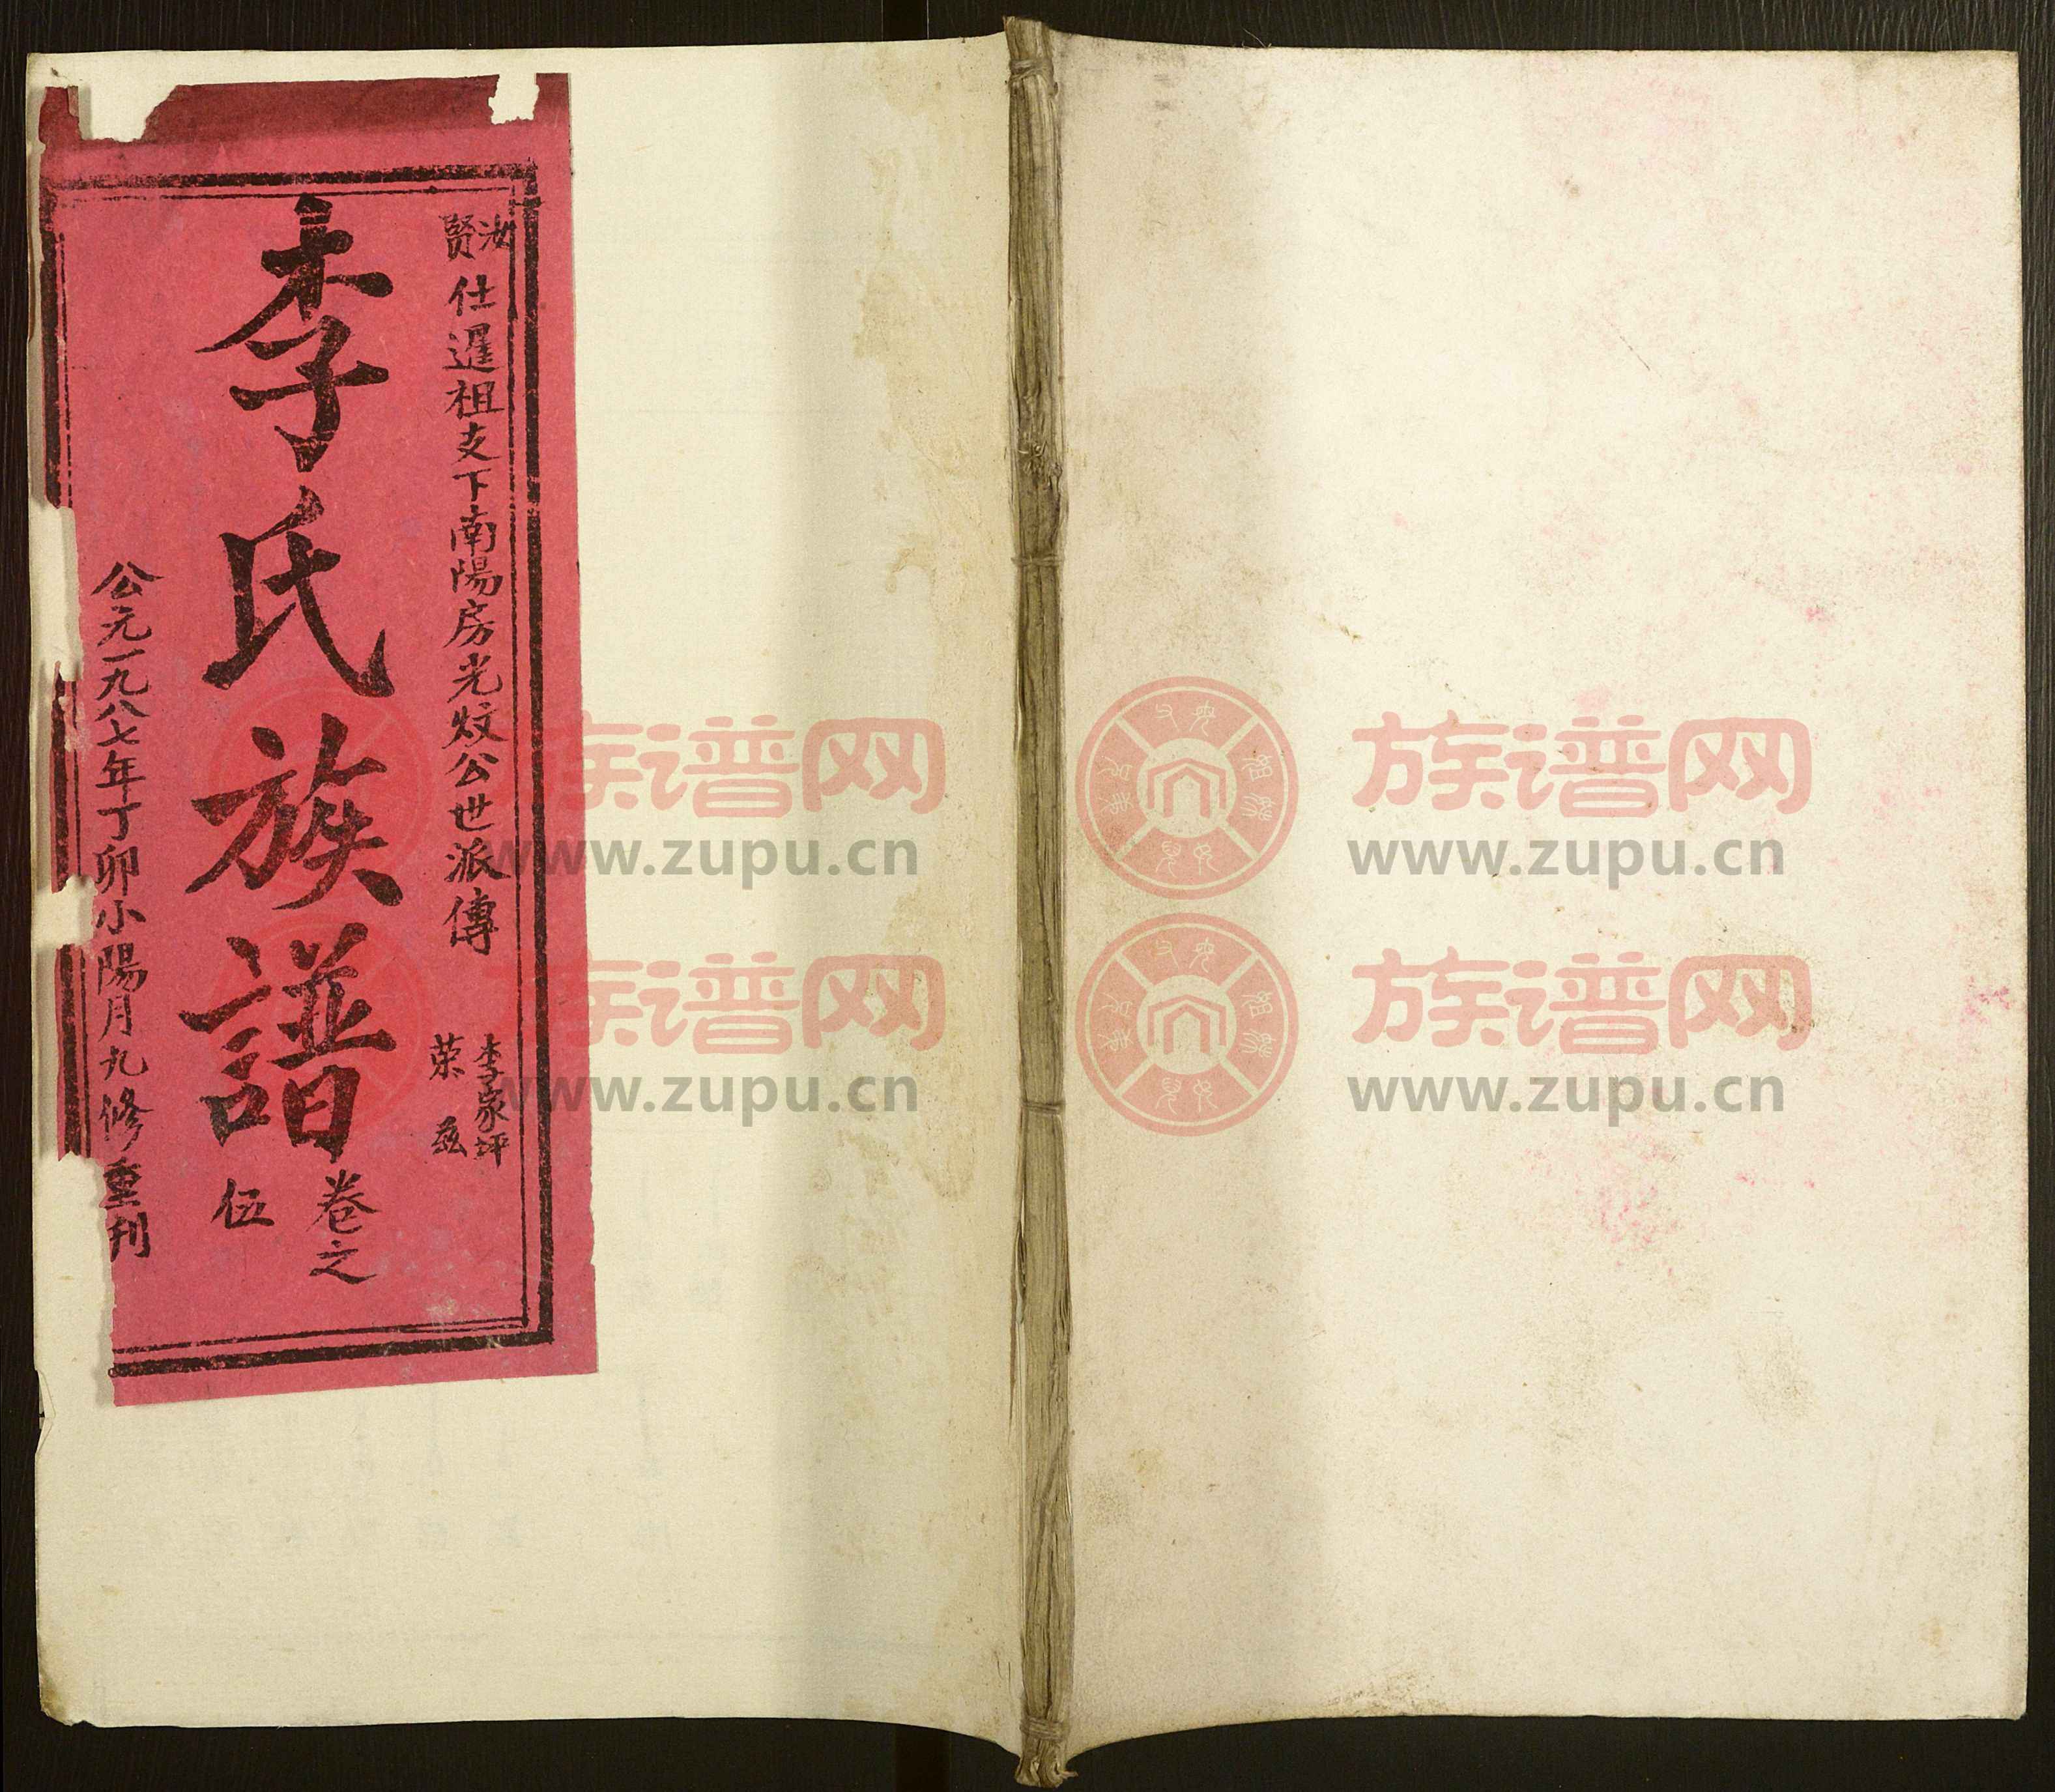 汝
賢
仕暹祖支下南陽房光炆公世派傳
李家坪
荣
李氏族譜
卷之
伍
公元一九八七年丁卯小陽月九修重刊
族谱网
www.zupu.cn
族谱网
www.zupu.cn
族谱网
www.zupu.cn
族谱网
www.zupu.cn